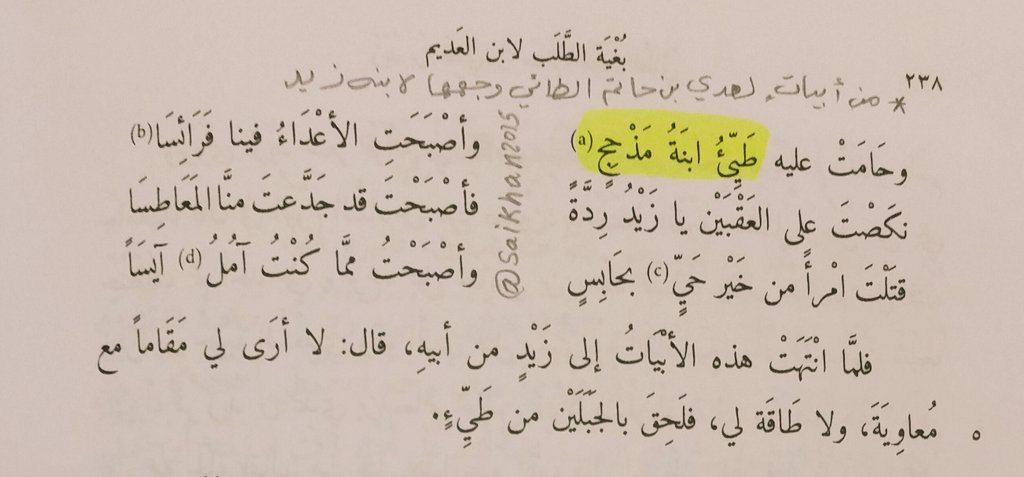 بُغْيَة الطَّلَب لابن العَديم
٢٣٨
* من أبيات لعدي بن حاتم الطائي وجهها لابنه زيد
وحَامَتْ عليه طَيِّئُ ابنَةُ مَذْحِجٍ (a) وأصْبَحَتِ الأعْدَاءُ فينا فَرَائِسَا (b)
نكَصْتَ على العَقْبَيْن يا زَيْدُ رِدَّةً فأصْبَحْتَ قد جَدَّعتَ منَّا المَعَاطِسَا
قتَلْتَ امْرأً من خَيْر حَيٍّ (c) بحَابِسٍ وأصْبَحْتُ ممَّا كُنْتُ آمُلُ (d) آيسَاً
فلمَّا انْتَهَتْ هذه الأبْيَاتُ إلى زَيْدٍ من أبيهِ، قال: لا أرَى لي مَقَاماً مع
٥ مُعاوِيَةَ، ولا طَاقَة لي، فلَحِقَ بالجَبَلَيْن من طَيِّءٍ.
@saikhan2015